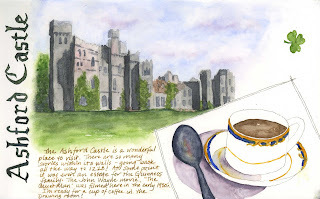 Ashford Castle
The Ashford Castle is a wonderful
place to visit. There are so many
stories within its walls - going back
all the way to 1228! At some point
it was sent an estate for the Guinness
family. The John Wayne movie, "The
Quiet Man" was filmed here in the early 1950s.
I'm ready for a cup of coffee in the
Drawing room!